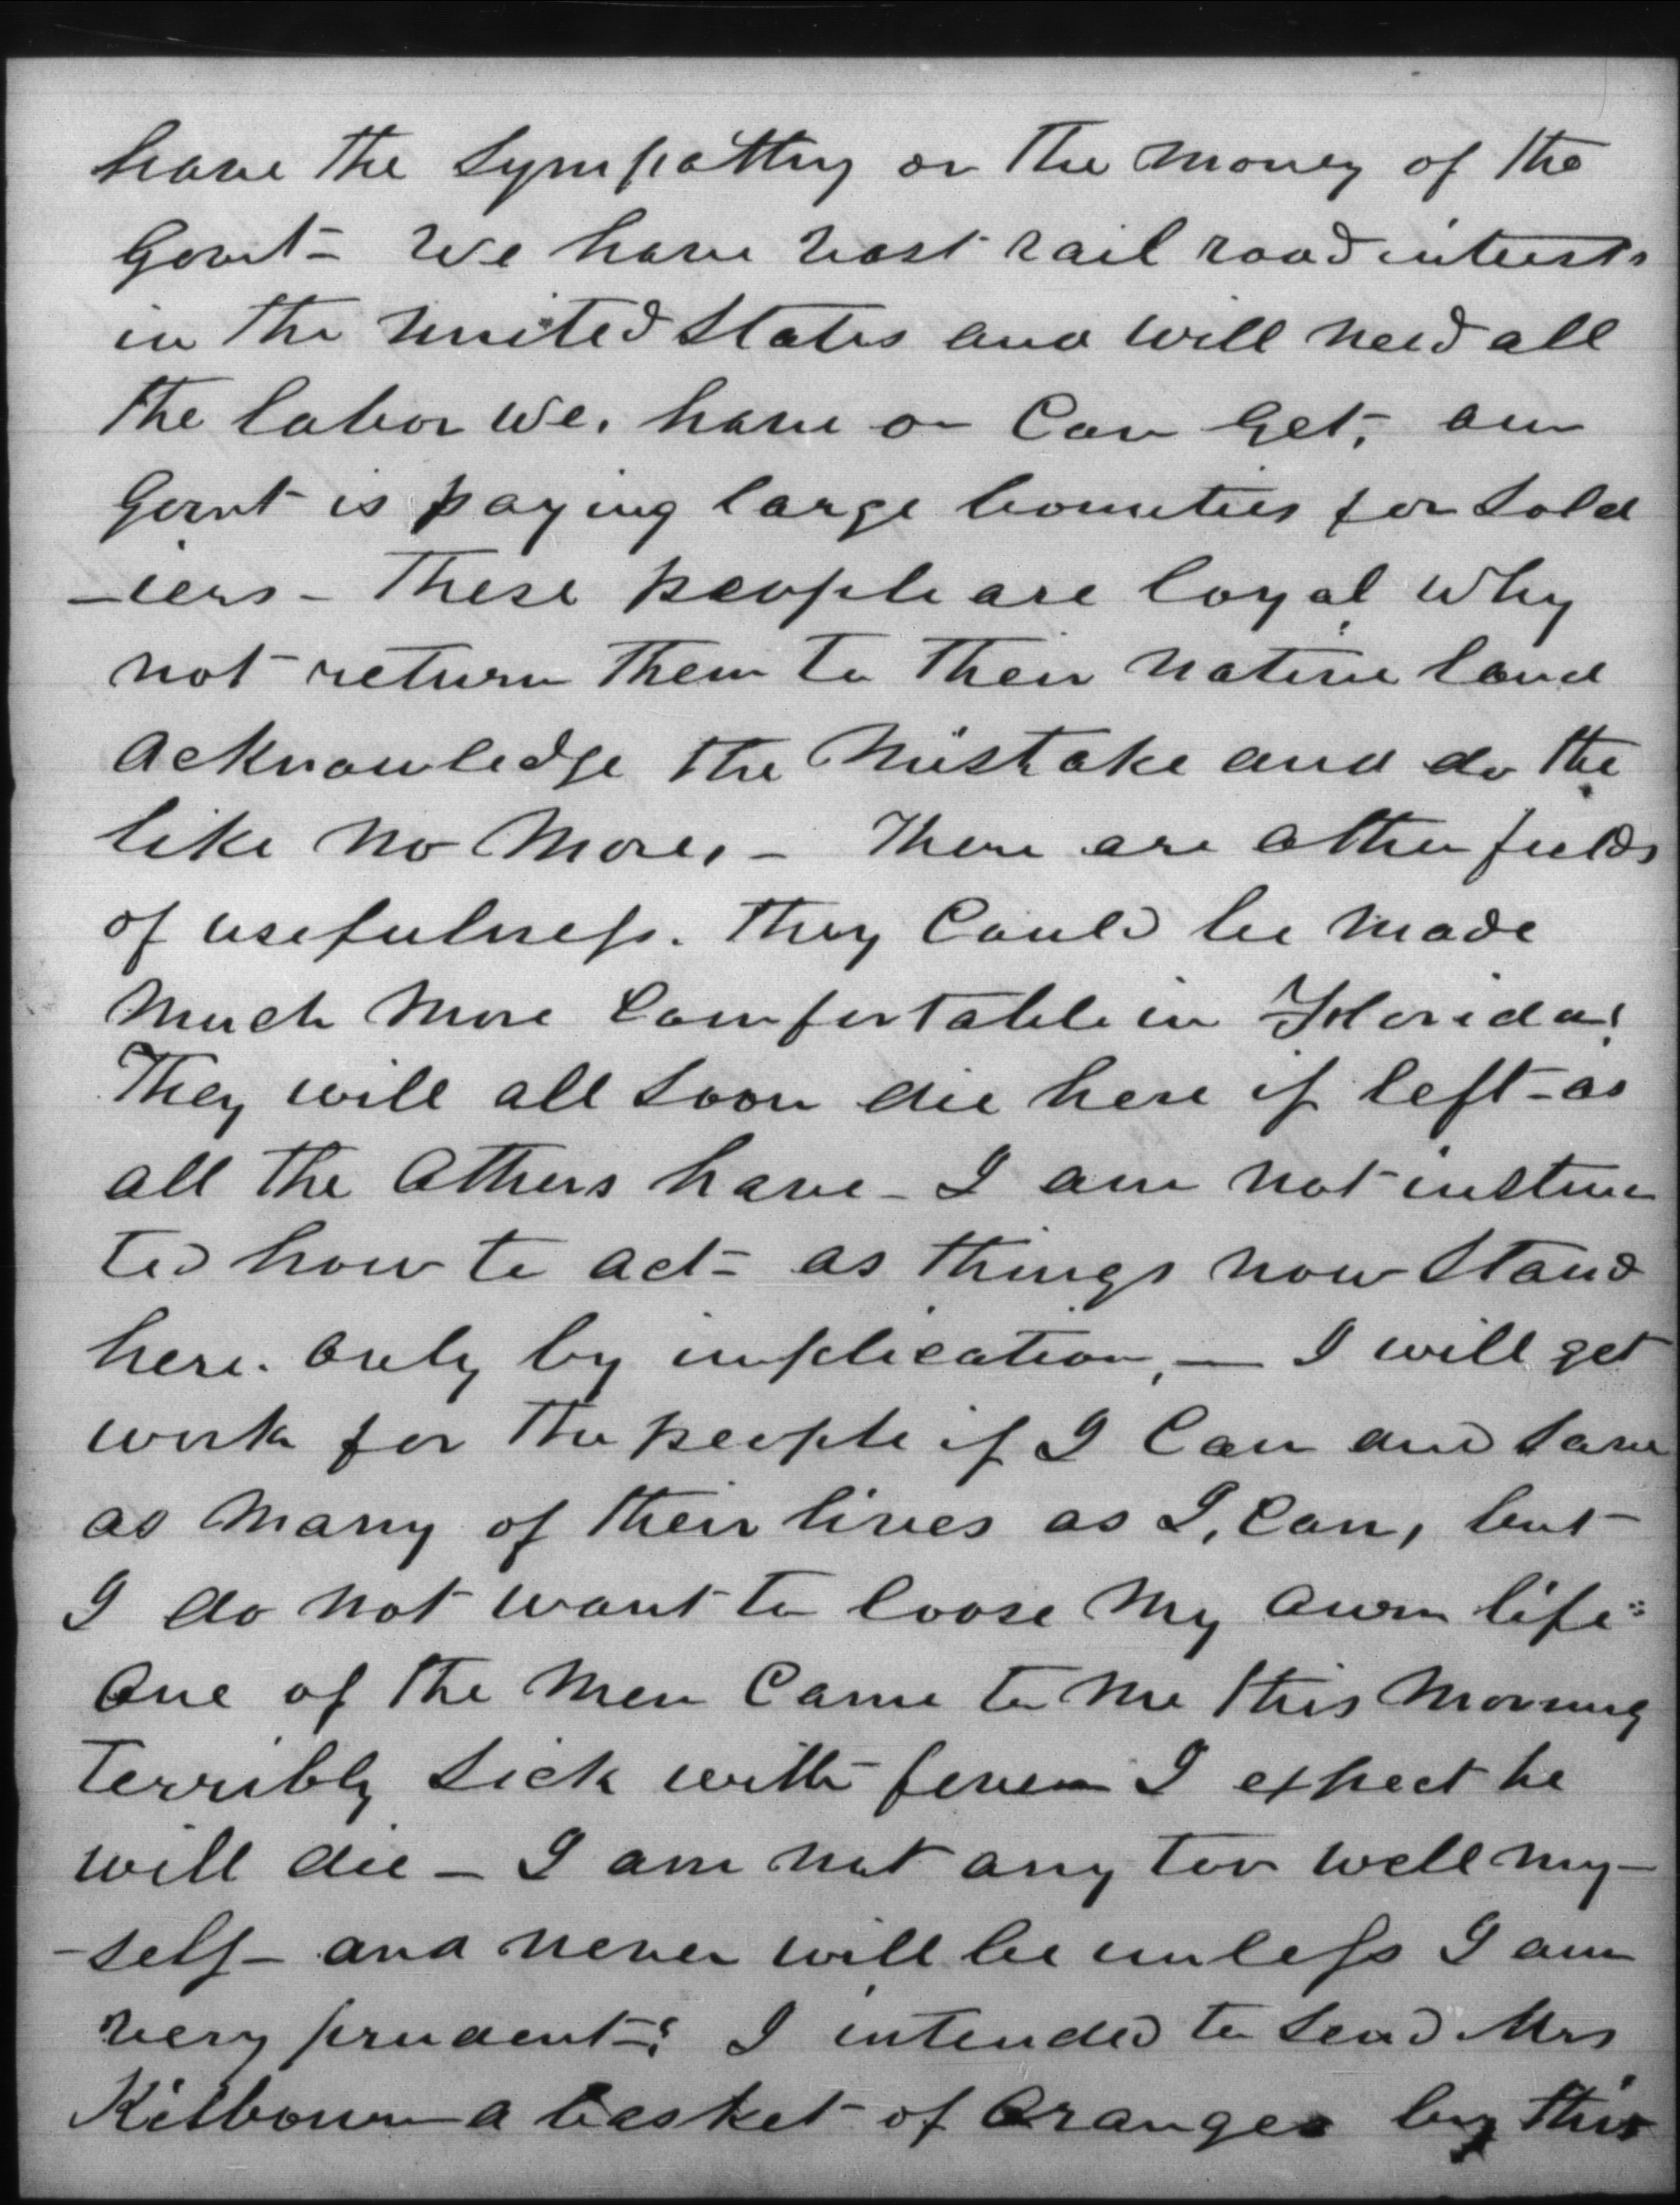 have the sympathy or the money of the
Govt- We have vast rail road interests
in the United States and will need all
the labor we. have or can get, our
Govt is paying large bounties for sold
-iers - These people are loyal why
not return them to their native land
acknowledge the mistake and do the
like no more, - There are other fields
of usefulness. They could be made
much more comfortable in Florida;
They will all soon die here if left - as
all the others have - I am not instruc
ted how to act - as things now stand
here. only by implication, - I will get
work for the people if I can and save
as many of their lives as I, can, but
I do not want to loose my own life:
One of the men came to me this morning
terribly sick with fever I expect he
will die - I am not any too well my-
-self - and never will be unless I am
very prudent -: I intended to send Mrs
Kilbourn a basket of oranges by this